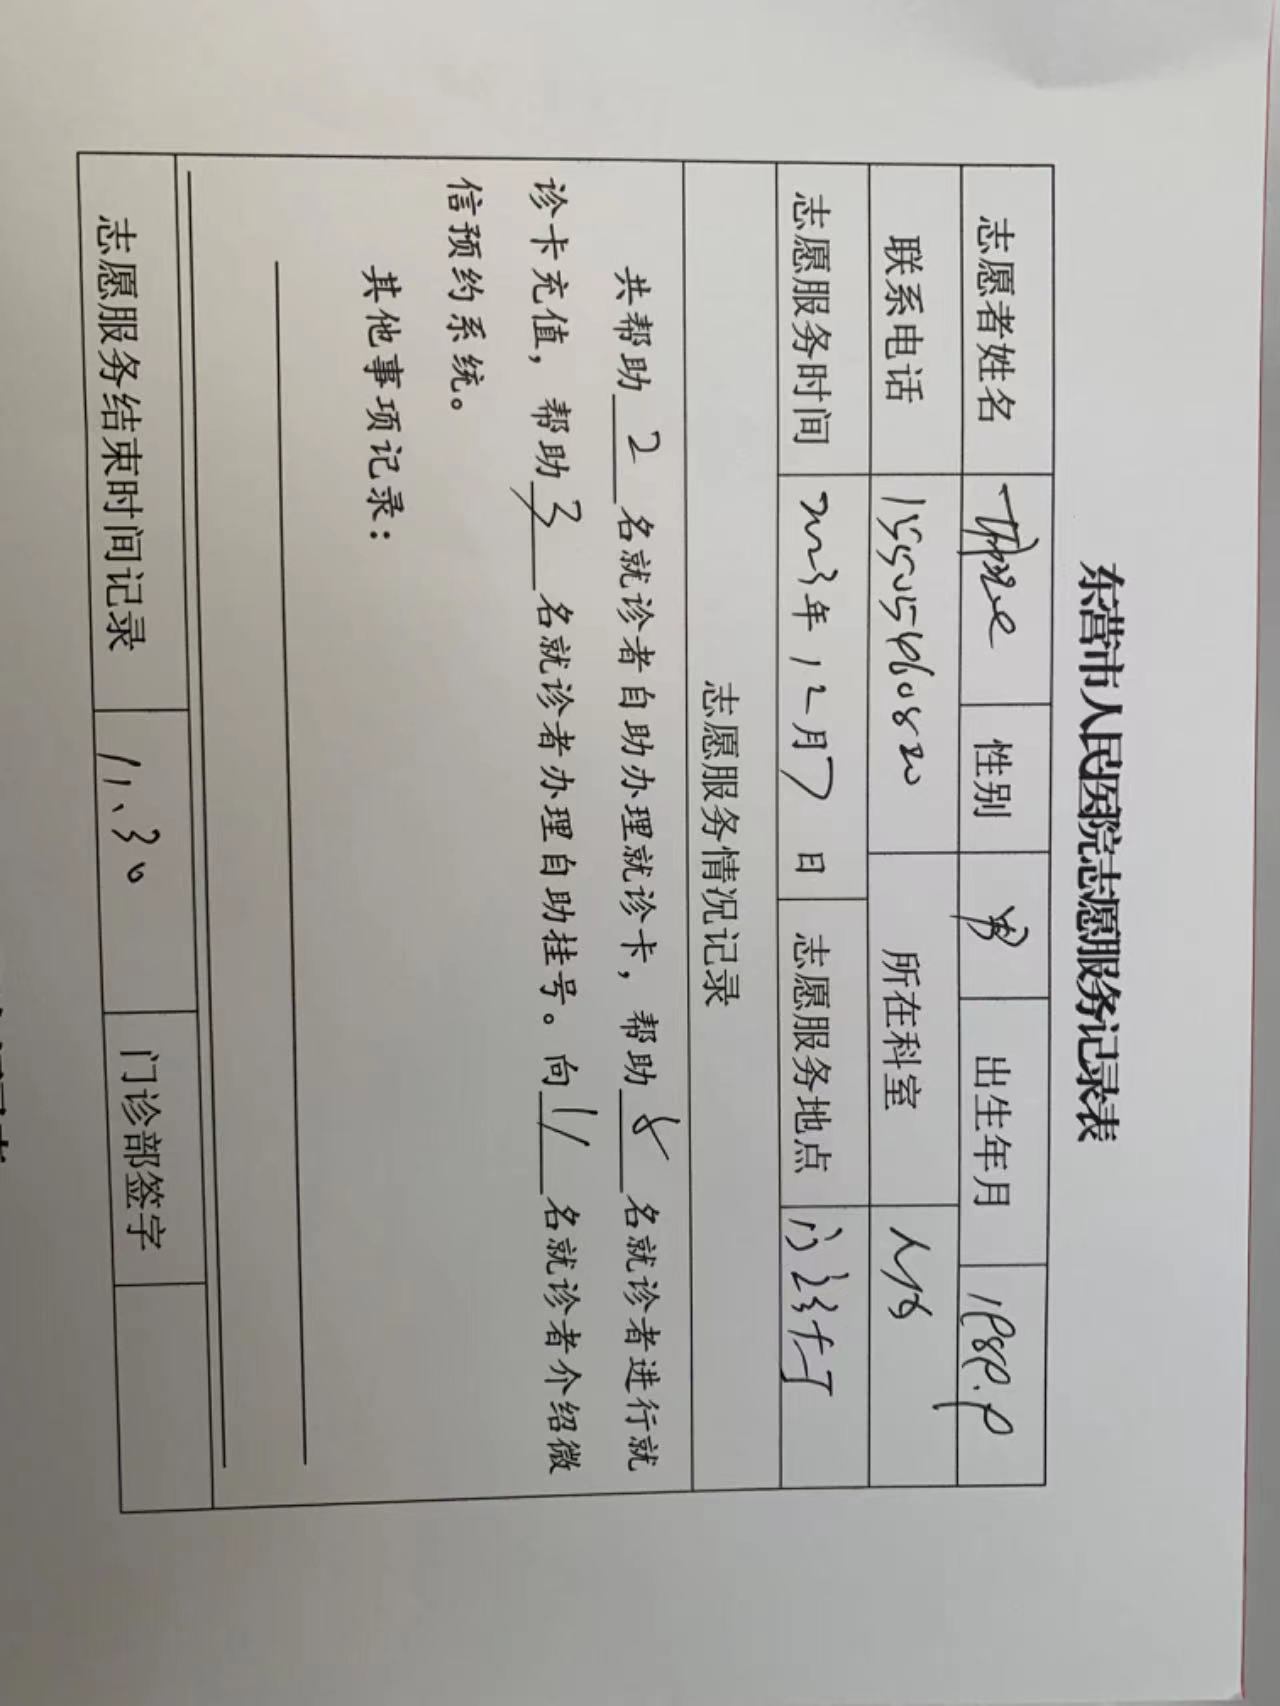 东营市人民医院志愿服务记录表
志愿者姓名 性别 男 出生年月 1989.9
联系电话 15505460820 所在科室
志愿服务时间 2023年12月7日 志愿服务地点 门诊大厅
志愿服务情况记录
共帮助2名就诊者自助办理就诊卡，帮助8名就诊者进行就
诊卡充值，帮助3名就诊者办理自助挂号。向11名就诊者介绍微
信预约系统。
其他事项记录：
志愿服务结束时间记录 11、30 门诊部签字